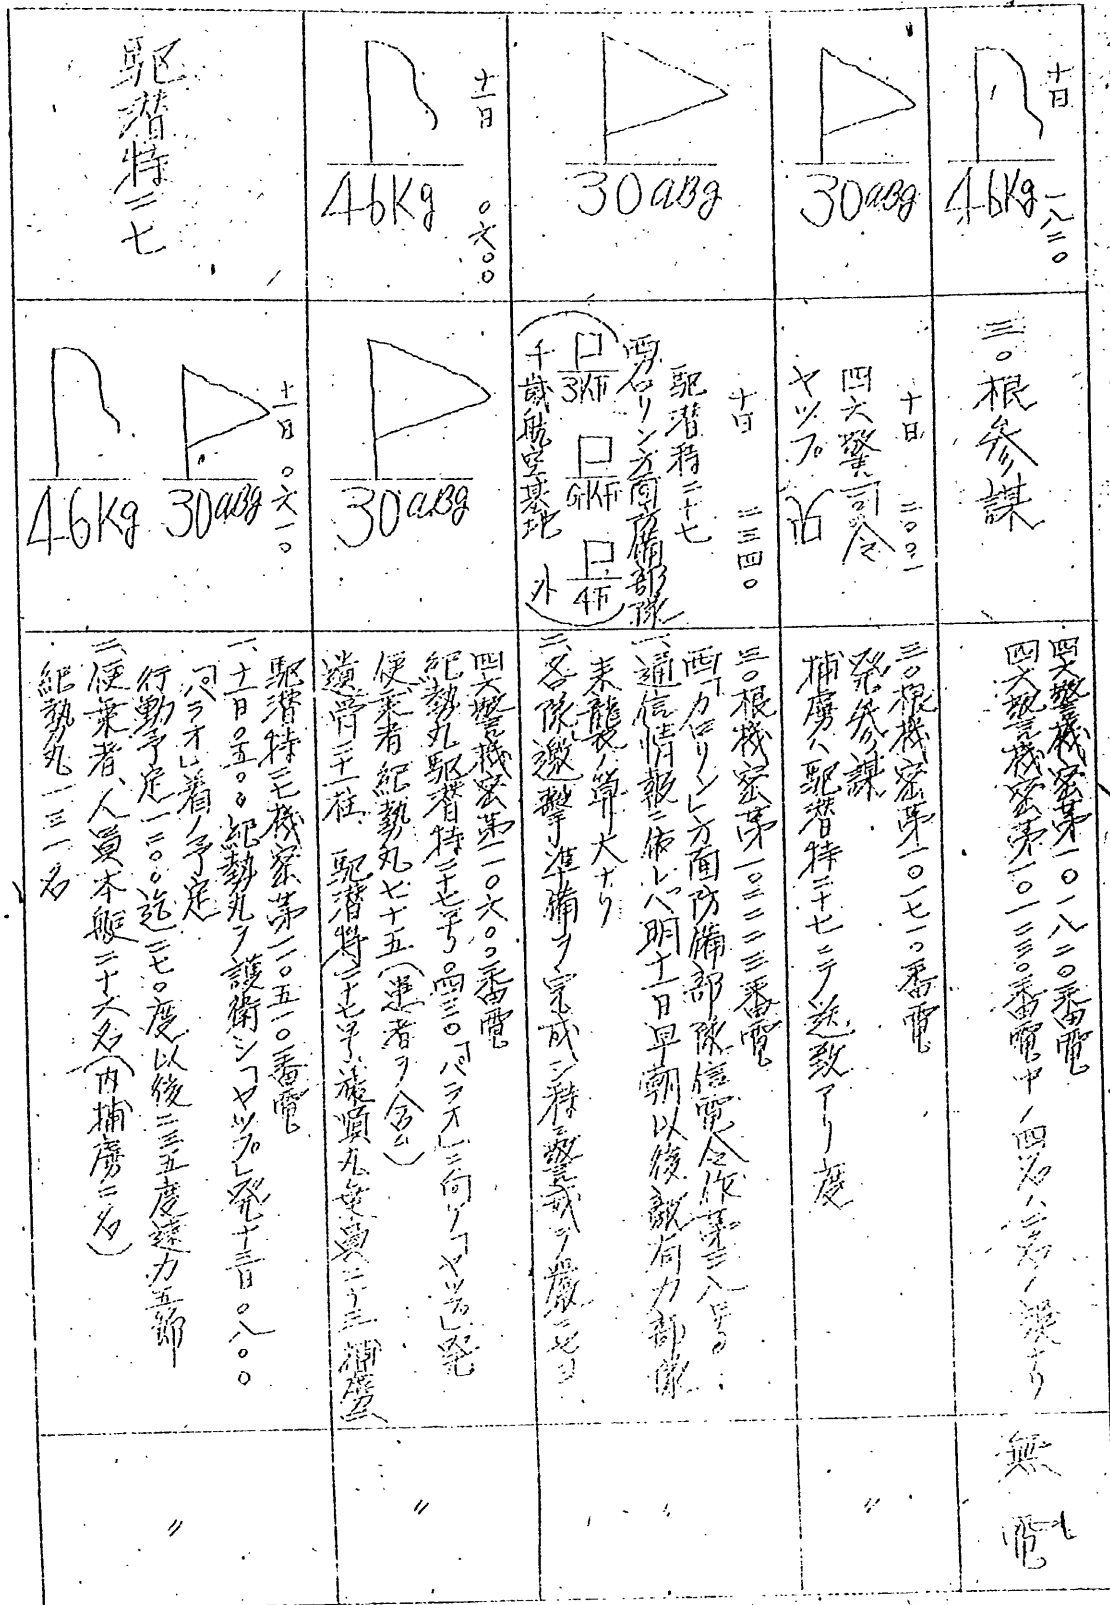 十日 一八二〇
46Kg
三〇根参謀
四六警機密第一〇一八二〇番電
四六警機密第一〇一二三〇番電中ノ四名ハ二名ノ誤ナリ
無電
30aBg
十日 二〇〇一
四六警司令
ヤップ
三〇根機密第一〇一七一〇番電
発参謀
捕虜ハ駆潜特二十七ニテ送致アリ度
〃
30aBg
十日 二三四〇
駆潜特二十七
西カロリン方面防備部隊
3KF
GKF
4F
千歳航空基地 外
三〇根機密第一〇二二二三番電
西「カロリン」方面防備部隊信電令作第三八号
一、通信情報ニ依レバ明十一日早朝以後敵有力部隊
来襲ノ算大ナリ
二、各隊邀撃準備ヲ完成シ特ニ警戒ヲ厳ニセヨ
十一日 〇六〇〇
46Kg
30aBg
四六警機密第一一〇六〇〇番電
紀勢丸駆潜特二十七号〇四三〇「パラオ」ニ向ケ「ヤップ」発
便乗者紀勢丸七十五(患者ヲ含ム)
遺骨二十一柱 駆潜特二十七号 順丸乗員二十三捕虜二
〃
駆潜特二七
十一日 〇六一〇
30aBg
46Kg
駆潜特二七機密第一一〇五一〇番電
一、十一日〇五〇〇紀勢丸ヲ護衛シ「ヤップ」発十三日〇八〇〇
「パラオ」着ノ予定
行動予定一二〇〇迄二七〇度以後二三五度速力五節
二、便乗者、人員本艇二十六名(内捕虜二名)
紀勢丸一三一名
〃